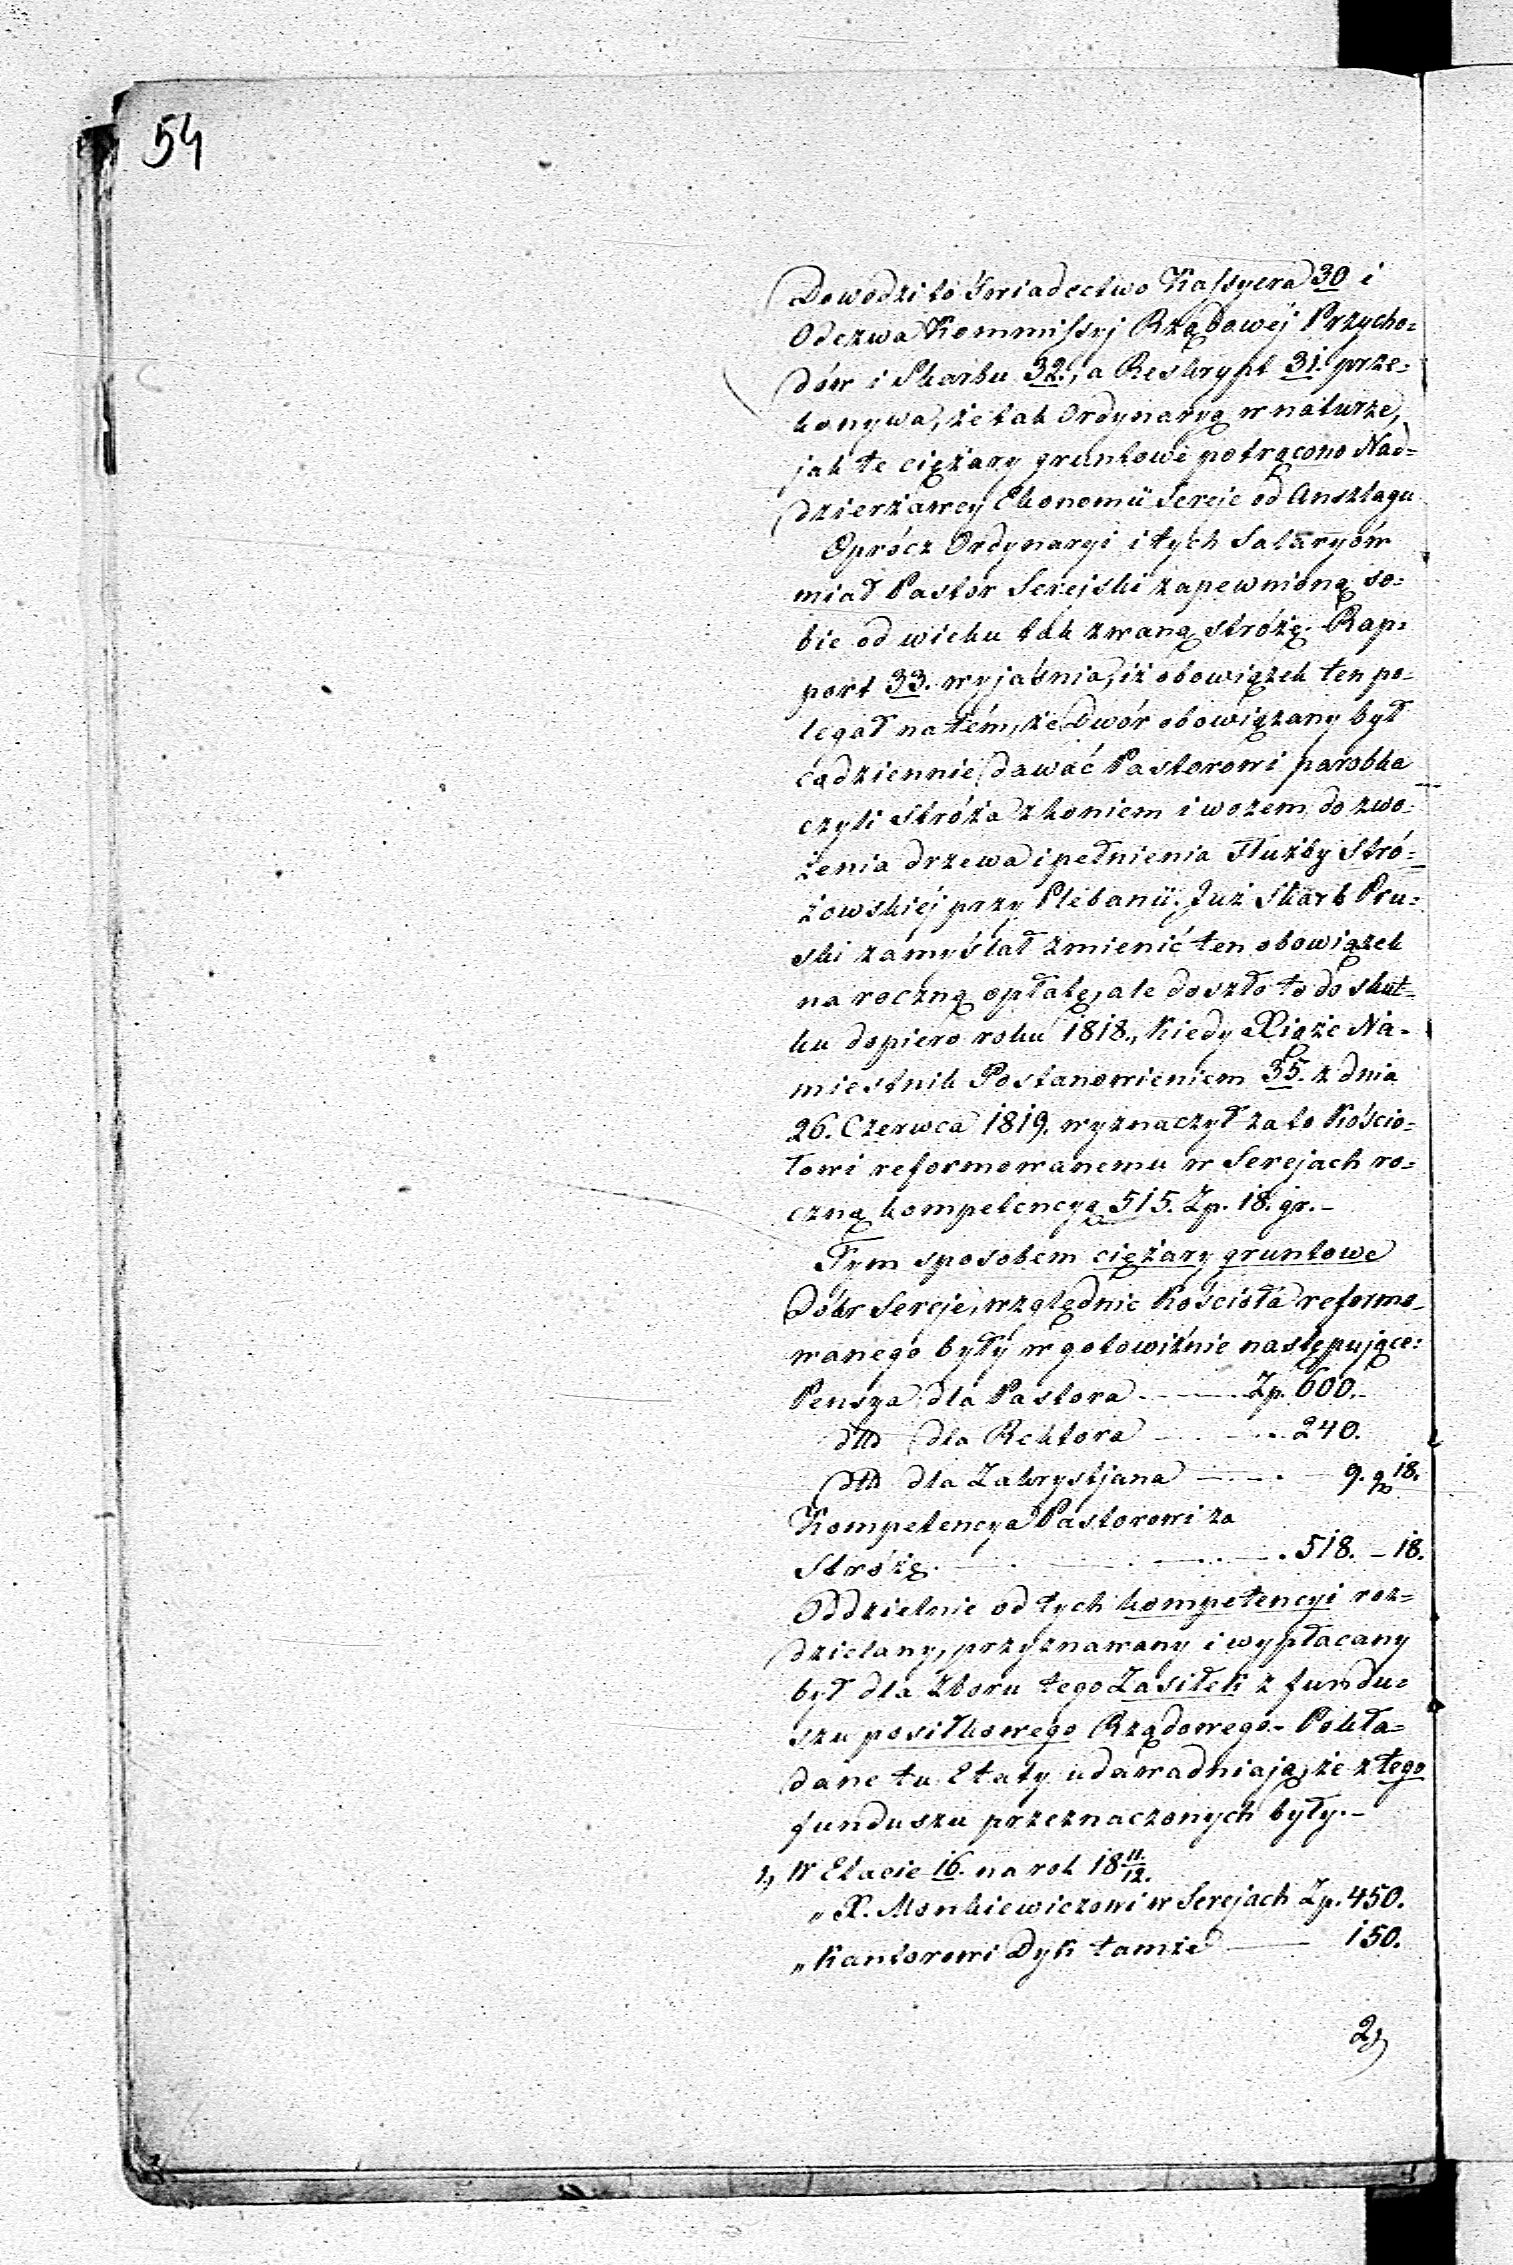 54
Dowodzi to świadectwo Kassyera 30 i
Odezwa Kommissyj Rządowéj Przycho=
dów i Skarbu 32., a Reskrypt 31. prze=
konywa, że tak Ordynaryą w naturze,
jak te ciężary gruntowe potrącono Nad=
dzierżawcy Ekonomii Sereje od Anszlagu
Oprócz Ordynaryi i tych Salaryów
miał Pastor Serejski zapewnioną so=
bie od wieku tak zwaną stróżę. Rap=
port 33. wyjaśnia, iż obowiązek ten po=
legał na tém, że Dwór obowiązany był
cądziennie dawać Pastorowi parobka
czyli stróża z koniem i wozem do zwo=
żenia drzewa i pełnienia służby stró=
żowskiéj przy Plebanii. Już Skarb Pru=
ski zamyślał zmienić ten obowiązek
na roczną opłatę, ale doszło to do skut=
ku dopiero roku 1818., kiedy Xiąże Na=
miestnik Postanowieniem 35. z dnia
26. Czerwca 1819. wyznaczył za to Kościo=
łowi reformowanemu w Serejach ro=
czną kompetencyą 515. Zp. 18. gr.-
Tym sposobem ciężary gruntowe
Dóbr Sereje, względnie Kościoła reformo=
wanego były w gotowiźnie następujące:
Pensya dla Pastora - - - Zp. 600.-
dtto dla Rektora - - - 240.
dtto dla Zakrystjana - - - 9. gr 18.
Kompetencya Pastorowi za
Stróżę. - - - 518. - 18.
Oddzielnie od tych kompetencyi roz=
dzielany, przyznawany i wypłacany
był dla Zboru tego Zasiłek z fundu=
szu posiłkowego Rządowego.- Pokła=
dane tu Etaty udawadniają, że z tego
funduszu przeznaczonych były.-
1, W Etacie 16. na rok 18 11/12.
„ X. Monkiewiczowi w Serejach Zp. 450.
„ Kantorowi Dyk tamże - 150.
2,